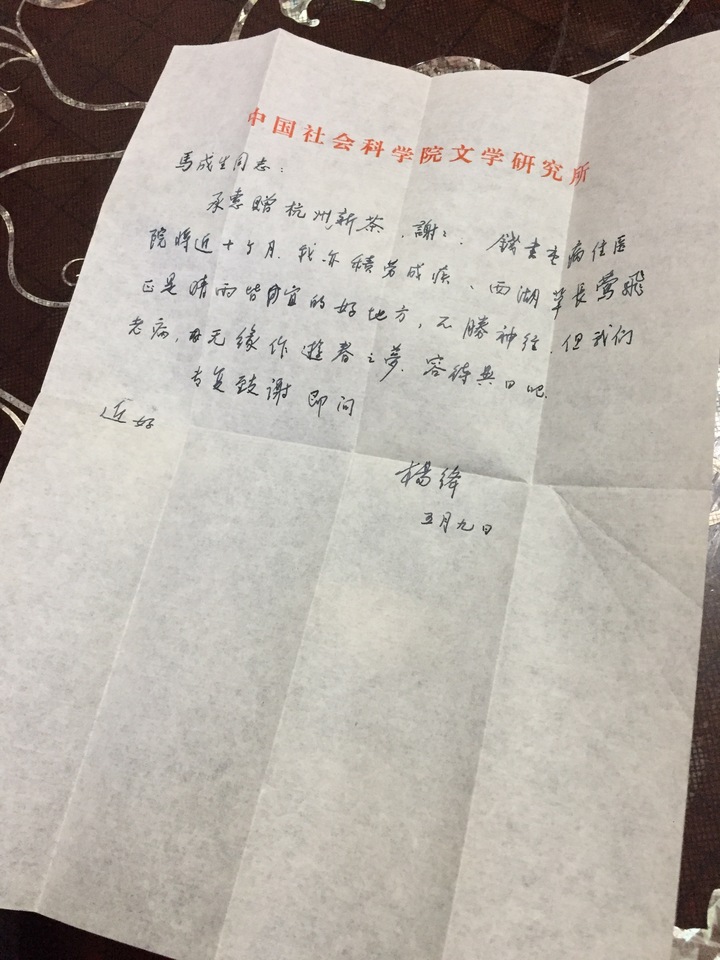 中国社会科学院文学研究所
馬成生同志：
承惠贈杭州新茶，謝謝。錢書病住医
院將近十个月，我亦積劳成疾。西湖草長鶯飛
正是晴雨皆宜的好地方，不勝神往。但我们
老病，无缘作遊春之夢，容待異日吧。
专复致謝 即问
近好
楊絳
五月九日